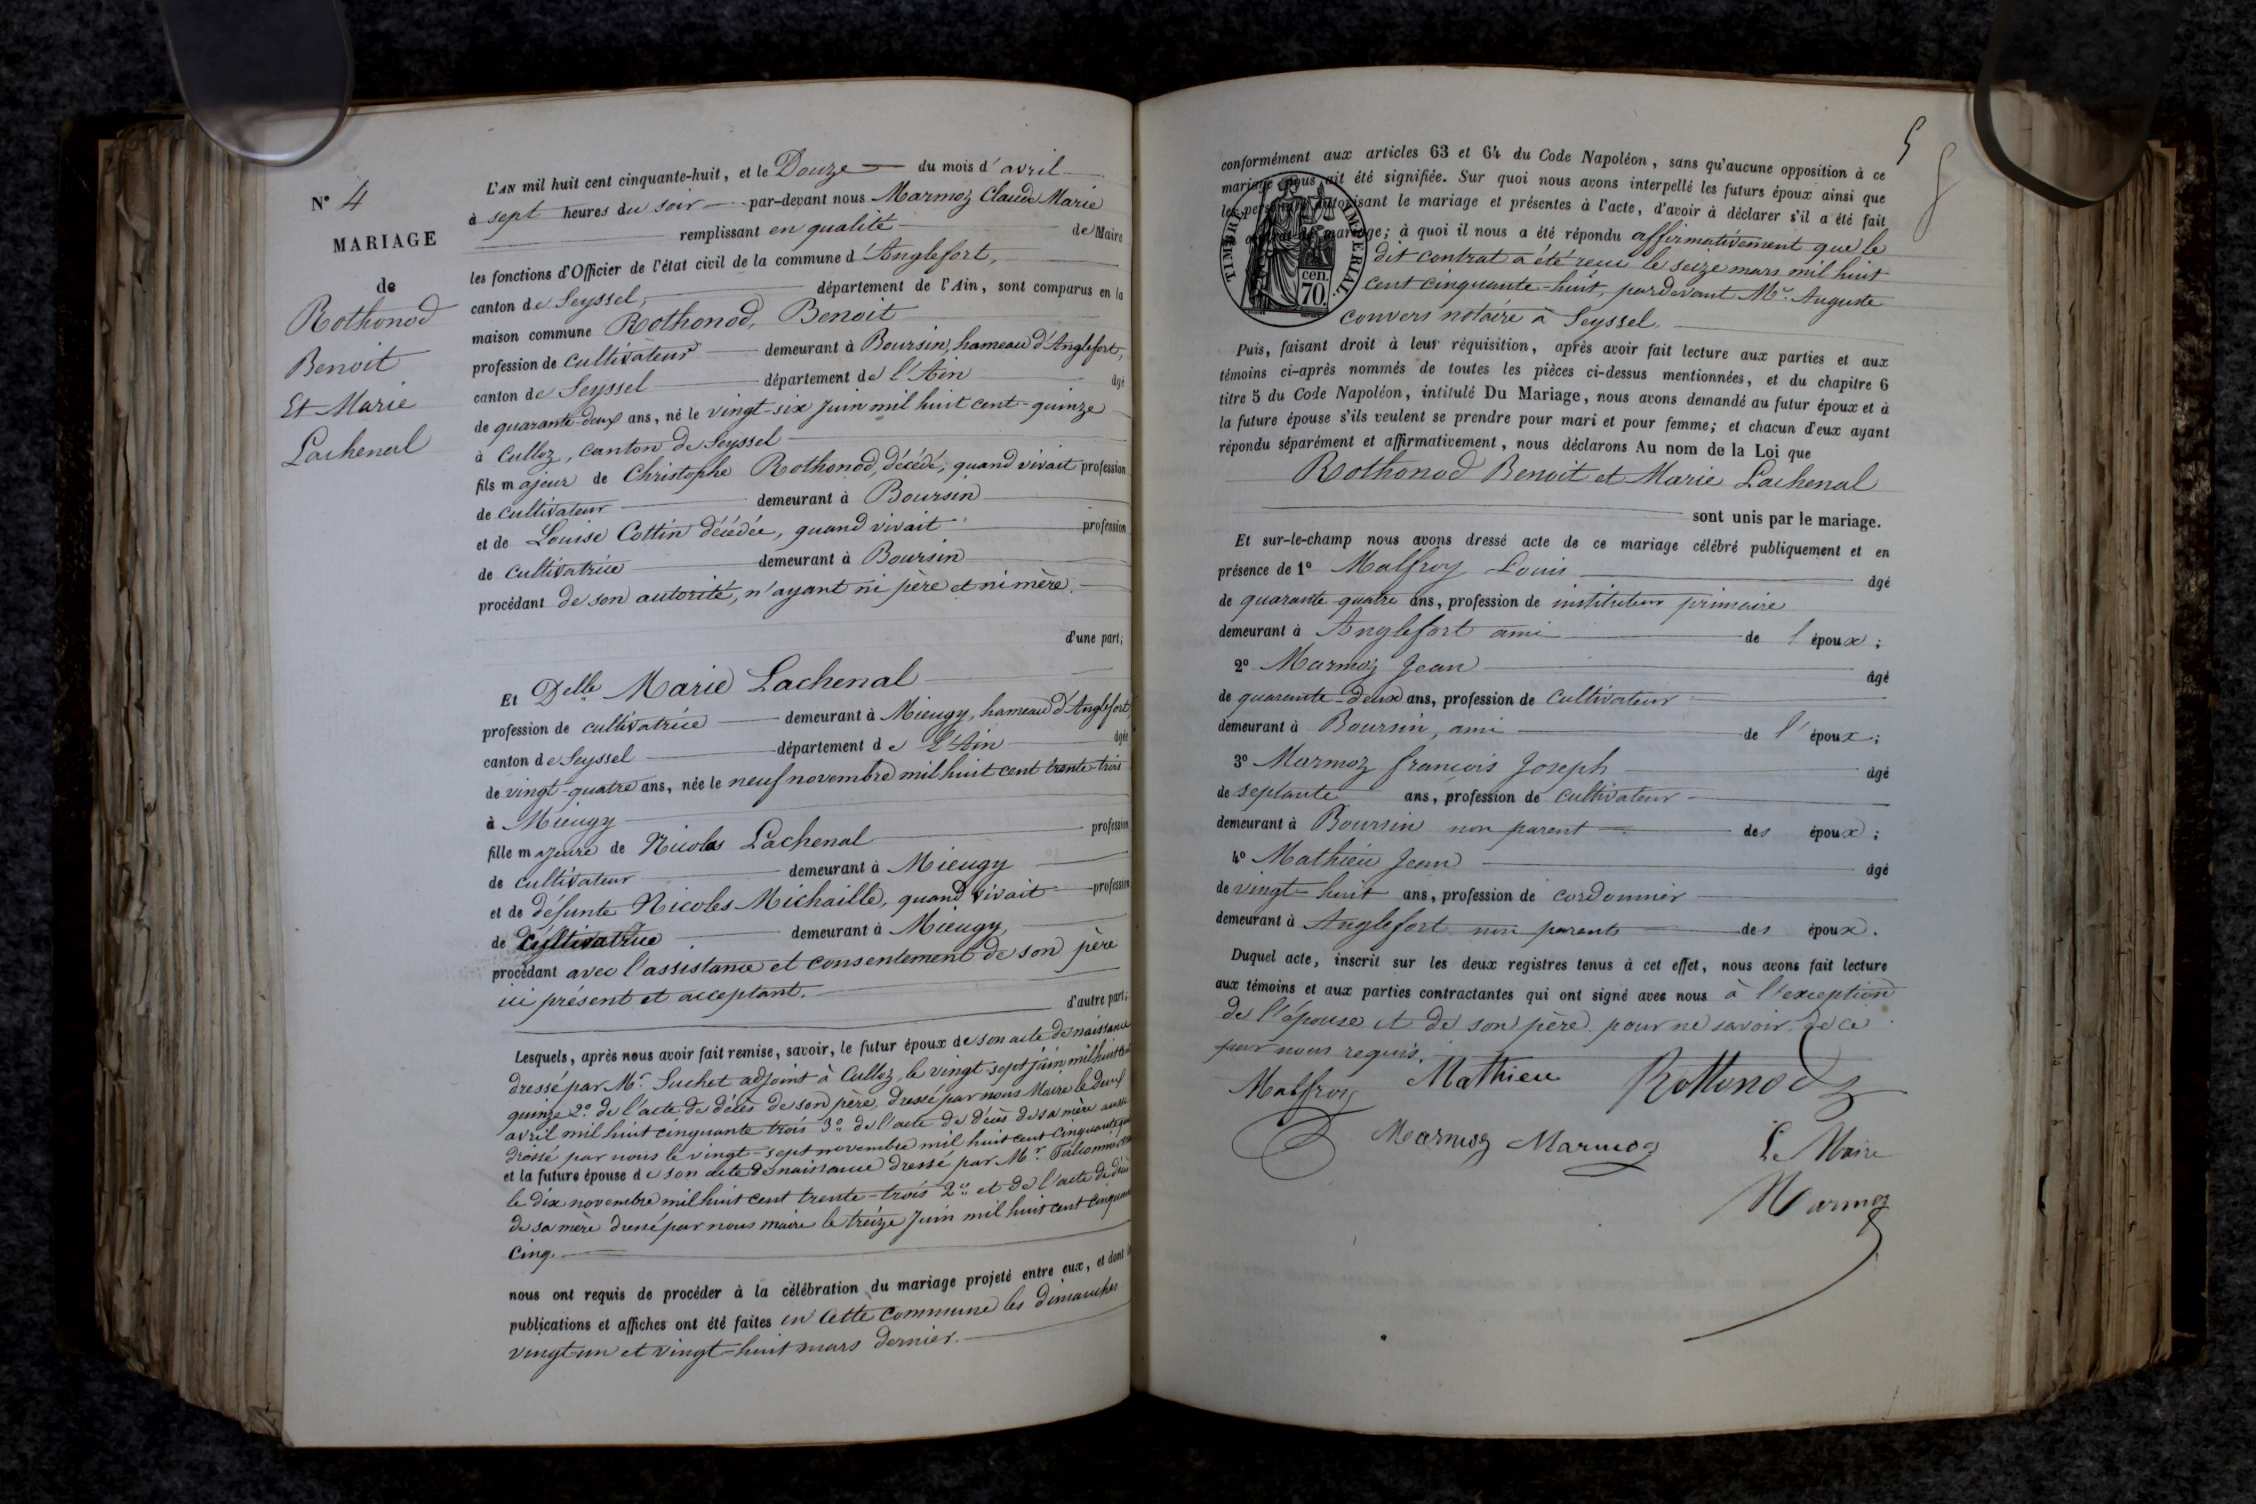 N° 4
MARIAGE
de
Rothonod
Benoit
Et Marie
Lachenal
L'AN mil huit cent cinquante-huit, et le Douze du mois d'avril
à sept heures du soir par-devant nous Marmoz Claude Marie
remplissant en qualité de Maire
les fonctions d'Officier de l'état civil de la commune d'Anglefort,
canton de Seyssel, département de l'Ain, sont comparus en la
maison commune Rothonod, Benoit
profession de cultivateur demeurant à Boursin, hameau d'Anglefort,
canton de Seyssel département de l'Ain âgé
de quarante-deux ans, né le vingt-six Juin mil huit cent-quinze
à Culloz, canton de Seyssel
fils majeur de Christophe Rothonod, décédé, quand vivait profession
de cultivateur demeurant à Boursin
et de Louise Cottin décédée, quand vivait profession
de cultivatrice demeurant à Boursin
procédant de son autorité, n'ayant ni père et ni mère.
d'une part;
Et Delle Marie Lachenal
profession de cultivatrice demeurant à Mieugy, hameau d'Anglefort,
canton de Seyssel département de L'Ain âgée
de vingt-quatre ans, née le neuf novembre mil huit cent trente-trois
à Mieugy
fille majeure de Nicolas Lachenal profession
de cultivateur demeurant à Mieugy
et de défunte Nicoles Michaille, quand vivait profession
de cultivatrice demeurant à Mieugy,
procédant avec l'assistance et consentement de son père
ici présent et acceptant.
d'autre part;
Lesquels, après nous avoir fait remise, savoir, le futur époux de son acte de naissance
dressé par Mr. Suchet adjoint à Culloz, le vingt-sept juin mil huit cent
quinze 2° de l'acte de décès de son père, dressé par nous Maire le deux
avril mil huit cinquante trois 3° de l'acte de décès de sa mère aussi
dressé par nous le vingt-sept novembre mil huit cent cinquante
et la future épouse de son acte de naissance dressé par Mr.
le dix novembre mil huit cent trente-trois 2° et de l'acte de décès
de sa mère dressé par nous maire le treize Juin mil huit cent cinquante
cinq.
nous ont requis de procéder à la célébration du mariage projeté entre eux, et dont les
publications et affiches ont été faites en cette commune les dimanches
vingt-un et vingt-huit mars dernier.
5
conformément aux articles 63 et 64 du Code Napoléon, sans qu'aucune opposition à ce
mariage nous ait été signifiée. Sur quoi nous avons interpellé les futurs époux ainsi que
les personnes autorisant le mariage et présentes à l'acte, d'avoir à déclarer s'il a été fait
contrat de mariage; à quoi il nous a été répondu affirmativement que le
dit contrat a été reçu le seize mars mil huit
cent cinquante-huit, pardevant Mr. Auguste
convers notaire à Seyssel.
TIMBRE IMPERIAL.
cen.
70.
Puis, faisant droit à leur réquisition, après avoir fait lecture aux parties et aux
témoins ci-après nommés de toutes les pièces ci-dessus mentionnées, et du chapitre 6
titre 5 du Code Napoléon, intitulé Du Mariage, nous avons demandé au futur époux et à
la future épouse s'ils veulent se prendre pour mari et pour femme; et chacun d'eux ayant
répondu séparément et affirmativement, nous déclarons Au nom de la Loi que
Rothonod Benoit et Marie Lachenal
sont unis par le mariage.
Et sur-le-champ nous avons dressé acte de ce mariage célébré publiquement et en
présence de 1° Malfroy Louis âgé
de quarante quatre ans, profession de instituteur primaire
demeurant à Anglefort ami de l'époux;
2° Marmoz Jean âgé
de quarante-deux ans, profession de cultivateur
demeurant à Boursin, ami de l'époux;
3° Marmoz françois Joseph âgé
de septante ans, profession de cultivateur
demeurant à Boursin non parent des époux;
4° Mathieu Jean âgé
de vingt-huit ans, profession de cordonnier
demeurant à Anglefort non parents des époux.
Duquel acte, inscrit sur les deux registres tenus à cet effet, nous avons fait lecture
aux témoins et aux parties contractantes qui ont signé avec nous à l'exception
de l'épouse et de son père pour ne savoir de ce
par nous requis.
Malfroy Mathieu Rottonod
Marmoz Marmoz Le Maire
Marmoz